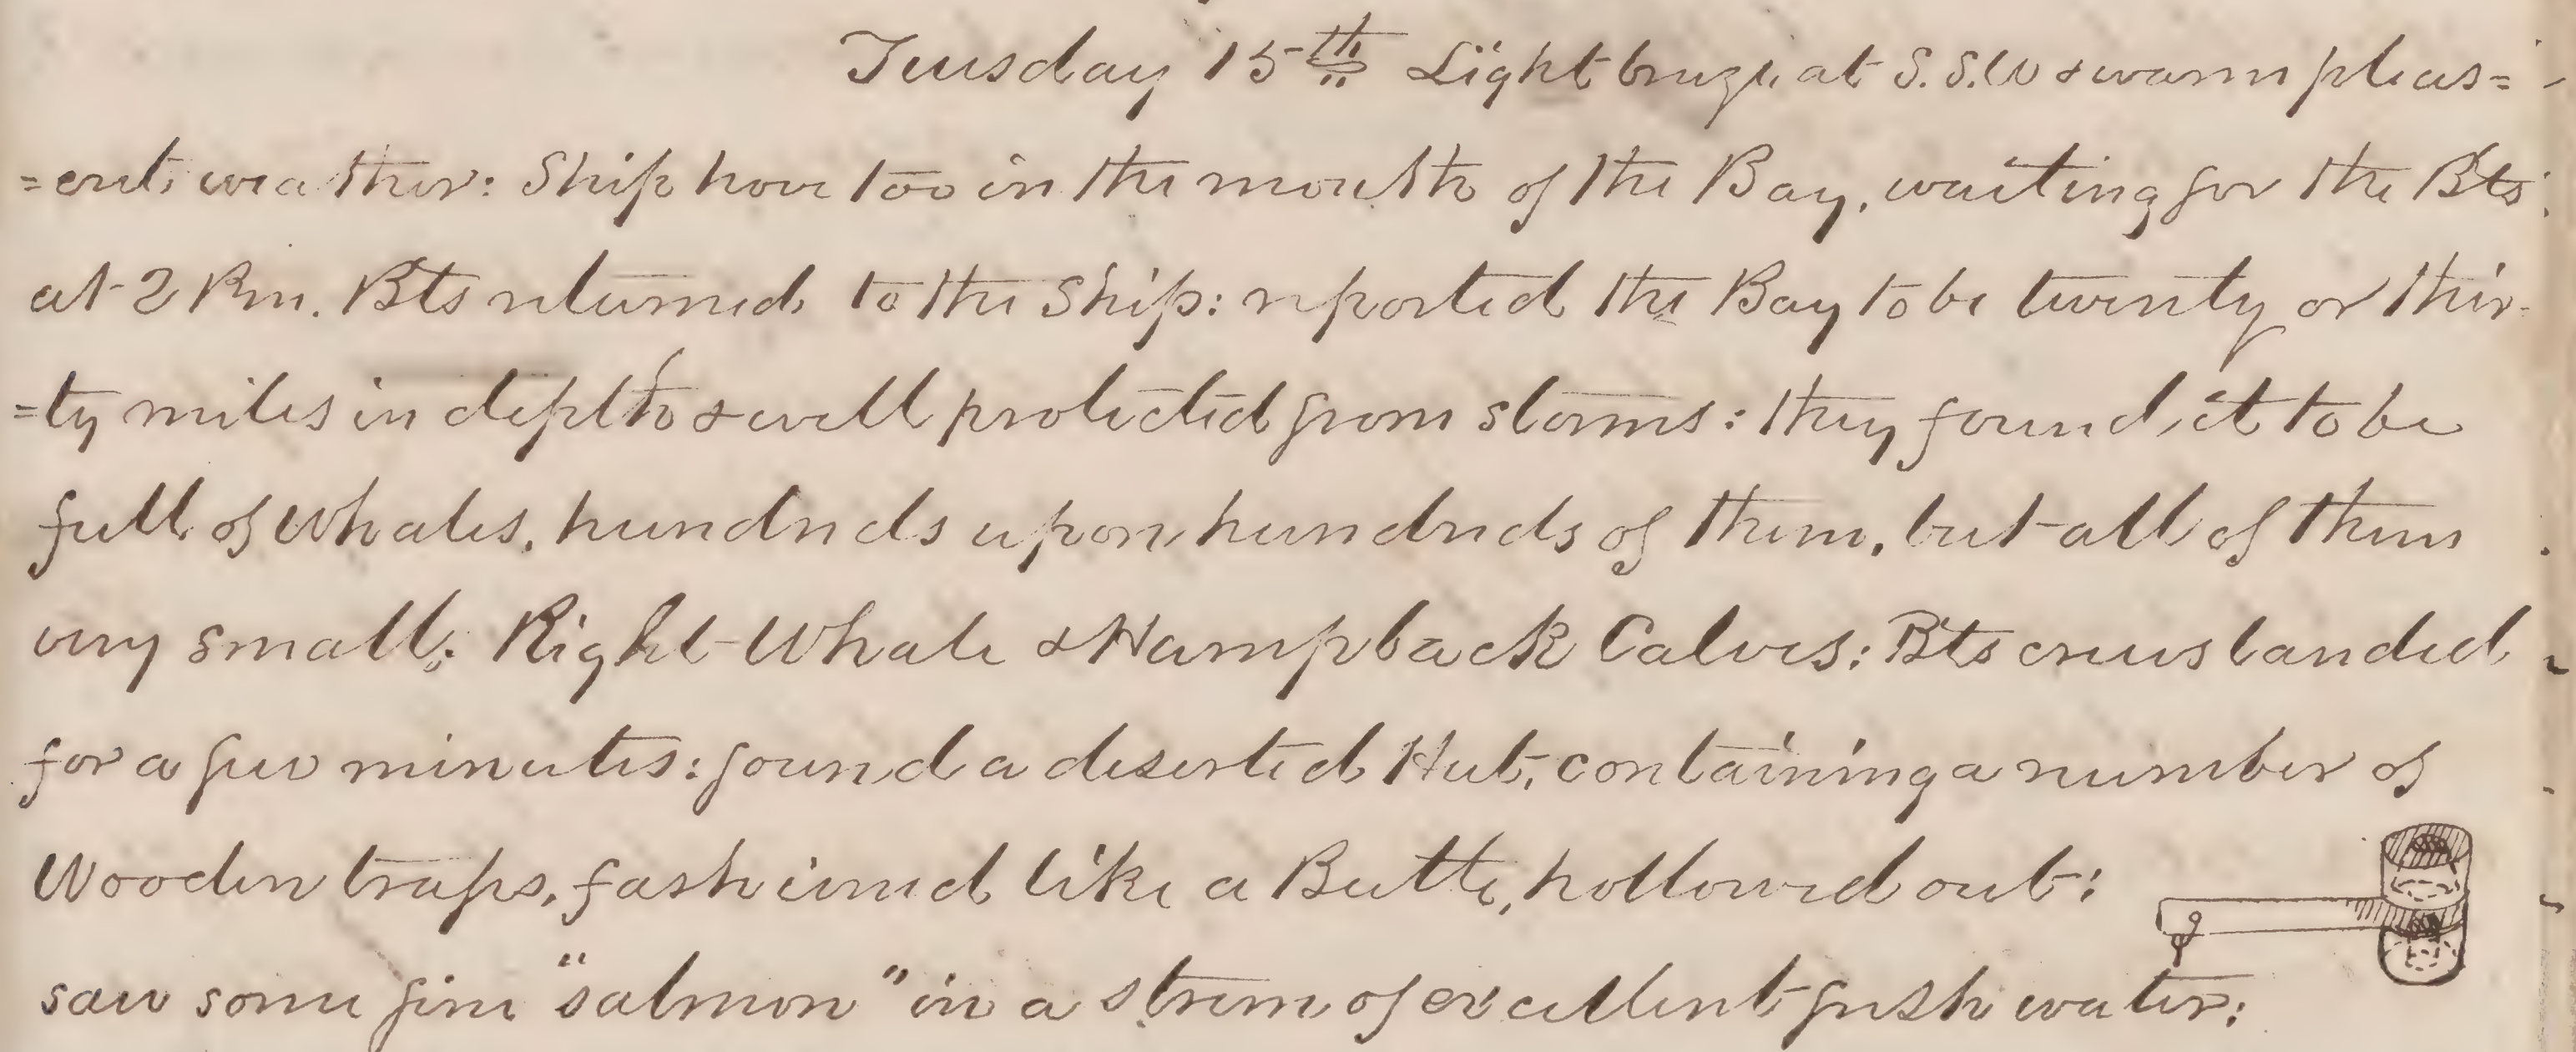 Tuesday 15th Light breeze at S.S.W & warm pleas=
=ent weather: Ship hove too in the mouth of the Bay, waiting for the Bts:
at 2 Pm. Bts returned to the Ship: reported the Bay to be twenty or thir-
=ty miles in depth & well protected from storms: they found it to be
full of Whales, hundreds upon hundreds of them, but all of them
very small: Right Whale & Humpback Calves: Bts crews landed
for a few minutes: found a deserted Hut, containing a number of
Wooden traps, fashioned like a Beetle, hollowed out:
saw some fine "salmon" in a streem of excellent fresh water: